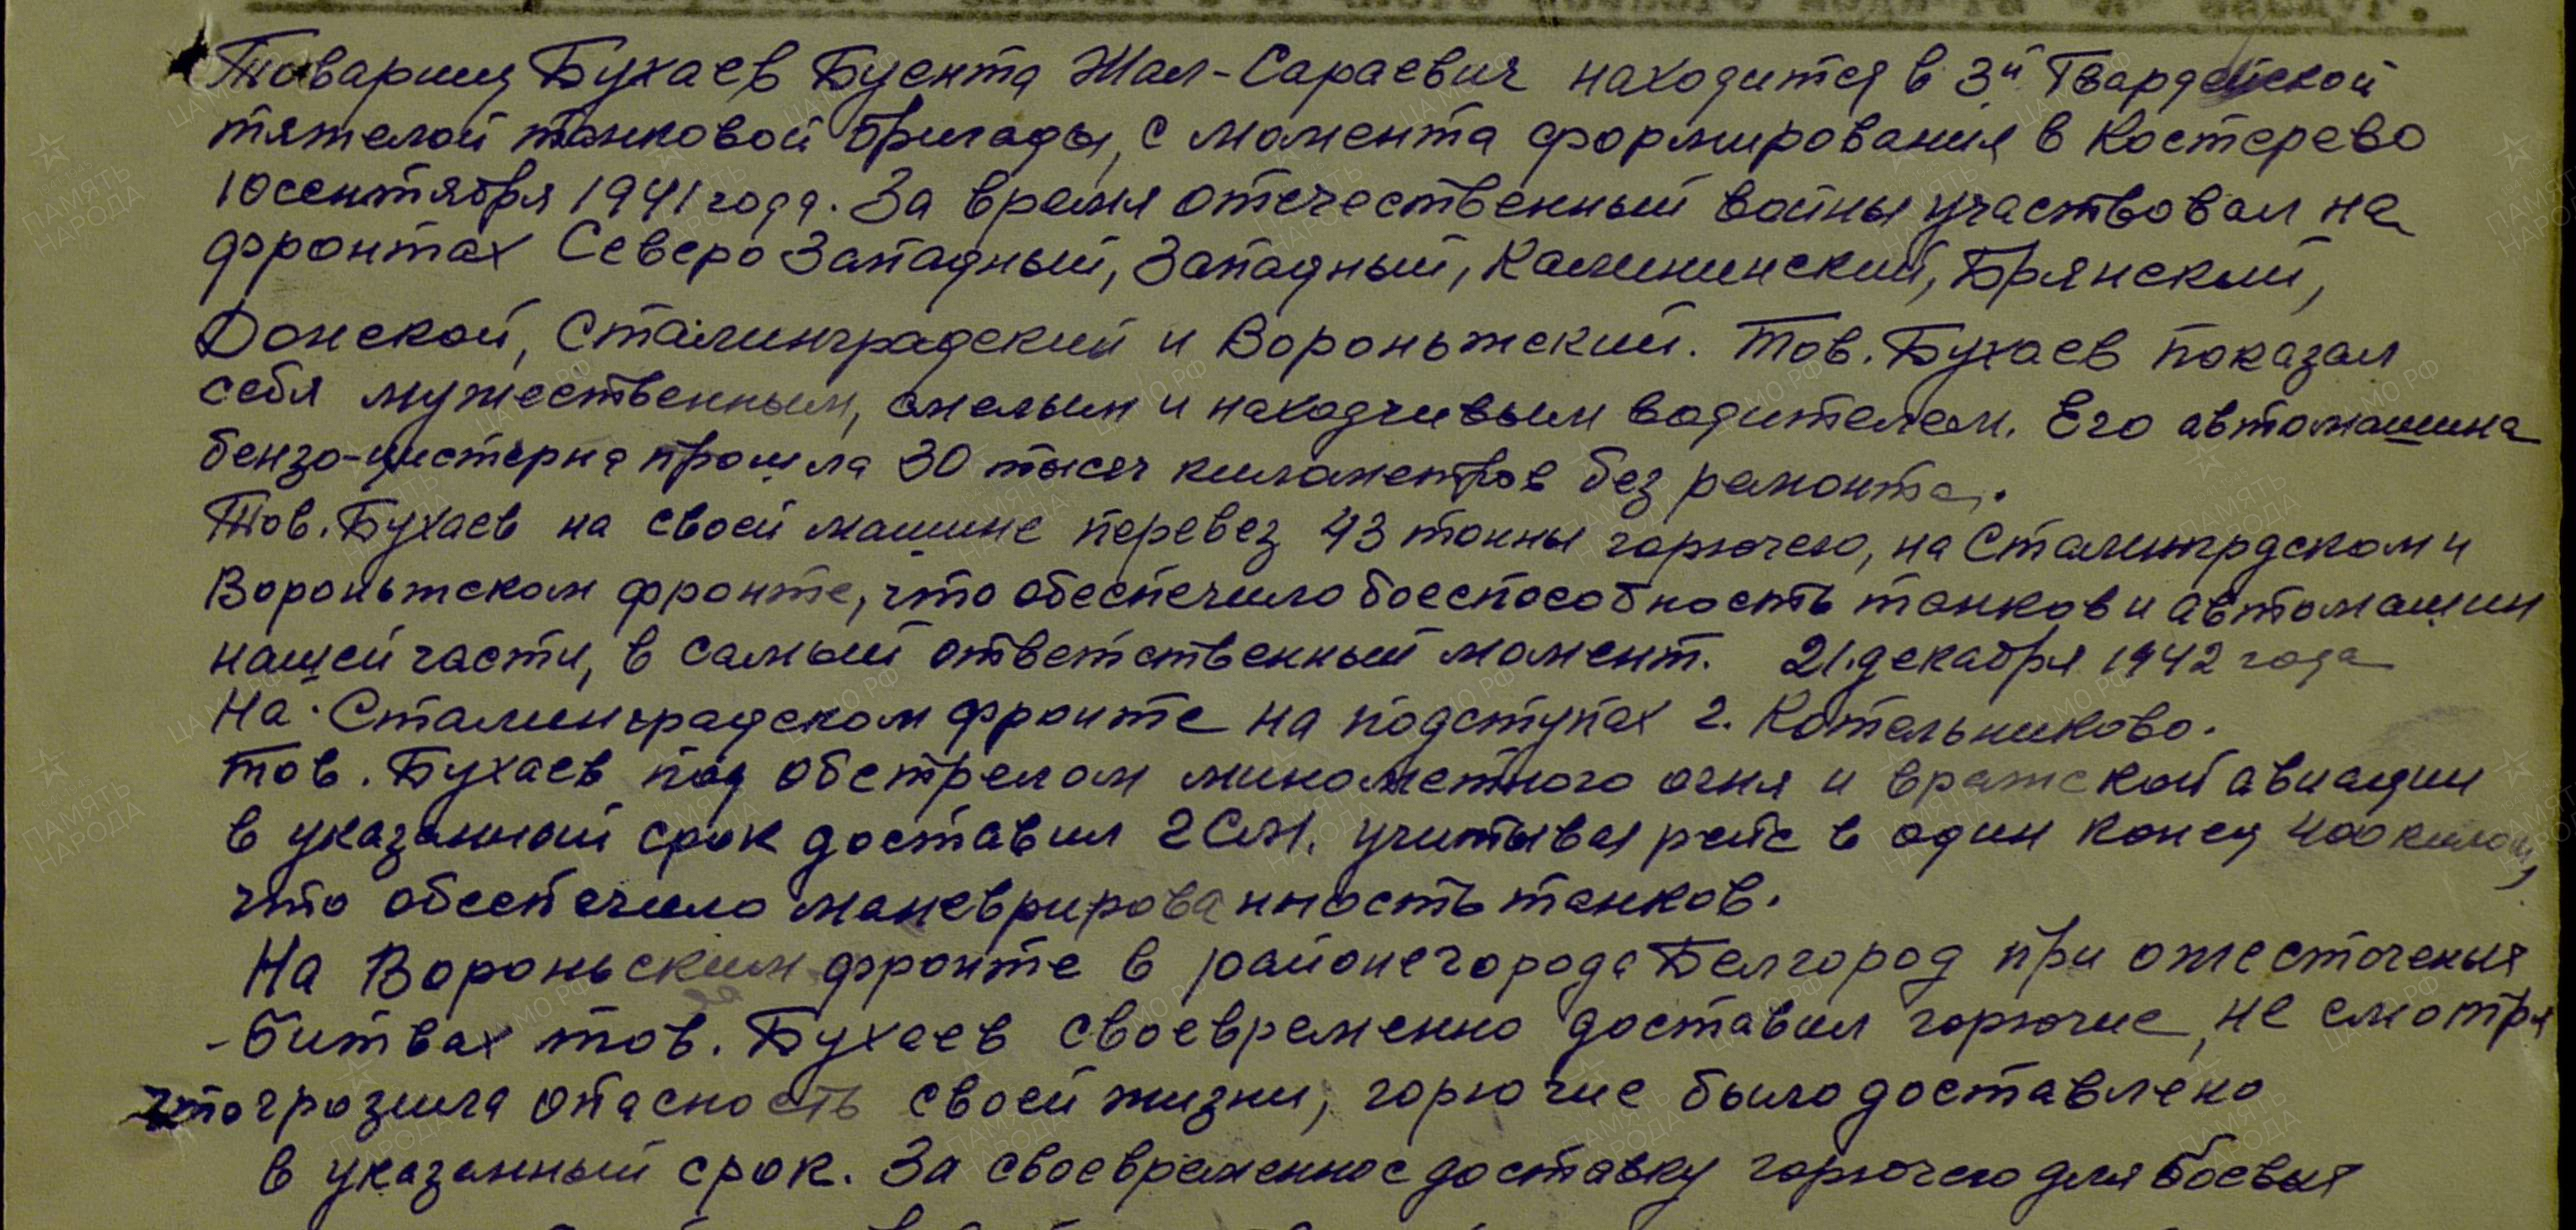 Товарищ Бухаев Буента Жал-Сараевич находится в 3й Гвардейской
тяжелой танковой бригады, с момента формирования в Костерево
10 сентября 1941 года. За время отечественный войны участвовал на
фронтах Северо Западный, Западный, Калининский, Брянский,
Донской, Сталинградский и Вороньжский. Тов. Бухаев показал
себя мужественным, смелым и находчивым водителем. Его автомашина
бензо-цистерна прошла 30 тысяч километров без ремонта.
Тов. Бухаев на своей машине перевез 43 тонны горючего, на Сталингрдском и
Вороньжском фронте, что обеспечило боеспособность танков и автомашин
нашей части, в самый ответственный момент. 21 декабря 1942 года
На Сталинградском фронте на подступах г. Котельниково.
тов. Бухаев под обстрелом минометного огня и вражеской авиации
в указанный срок доставил учитывая рейс в один конец 400 килом,
что обеспечило маневрированность танков.
На Вороньским фронте в районе города Белгород при ожесточеных
-битвах тов. Бухаев своевременно доставил горючие, не смотря
что грозила опасность своей жизни, горючие было доставлено
в указанный срок. За своевременное доставку горючего для боевых